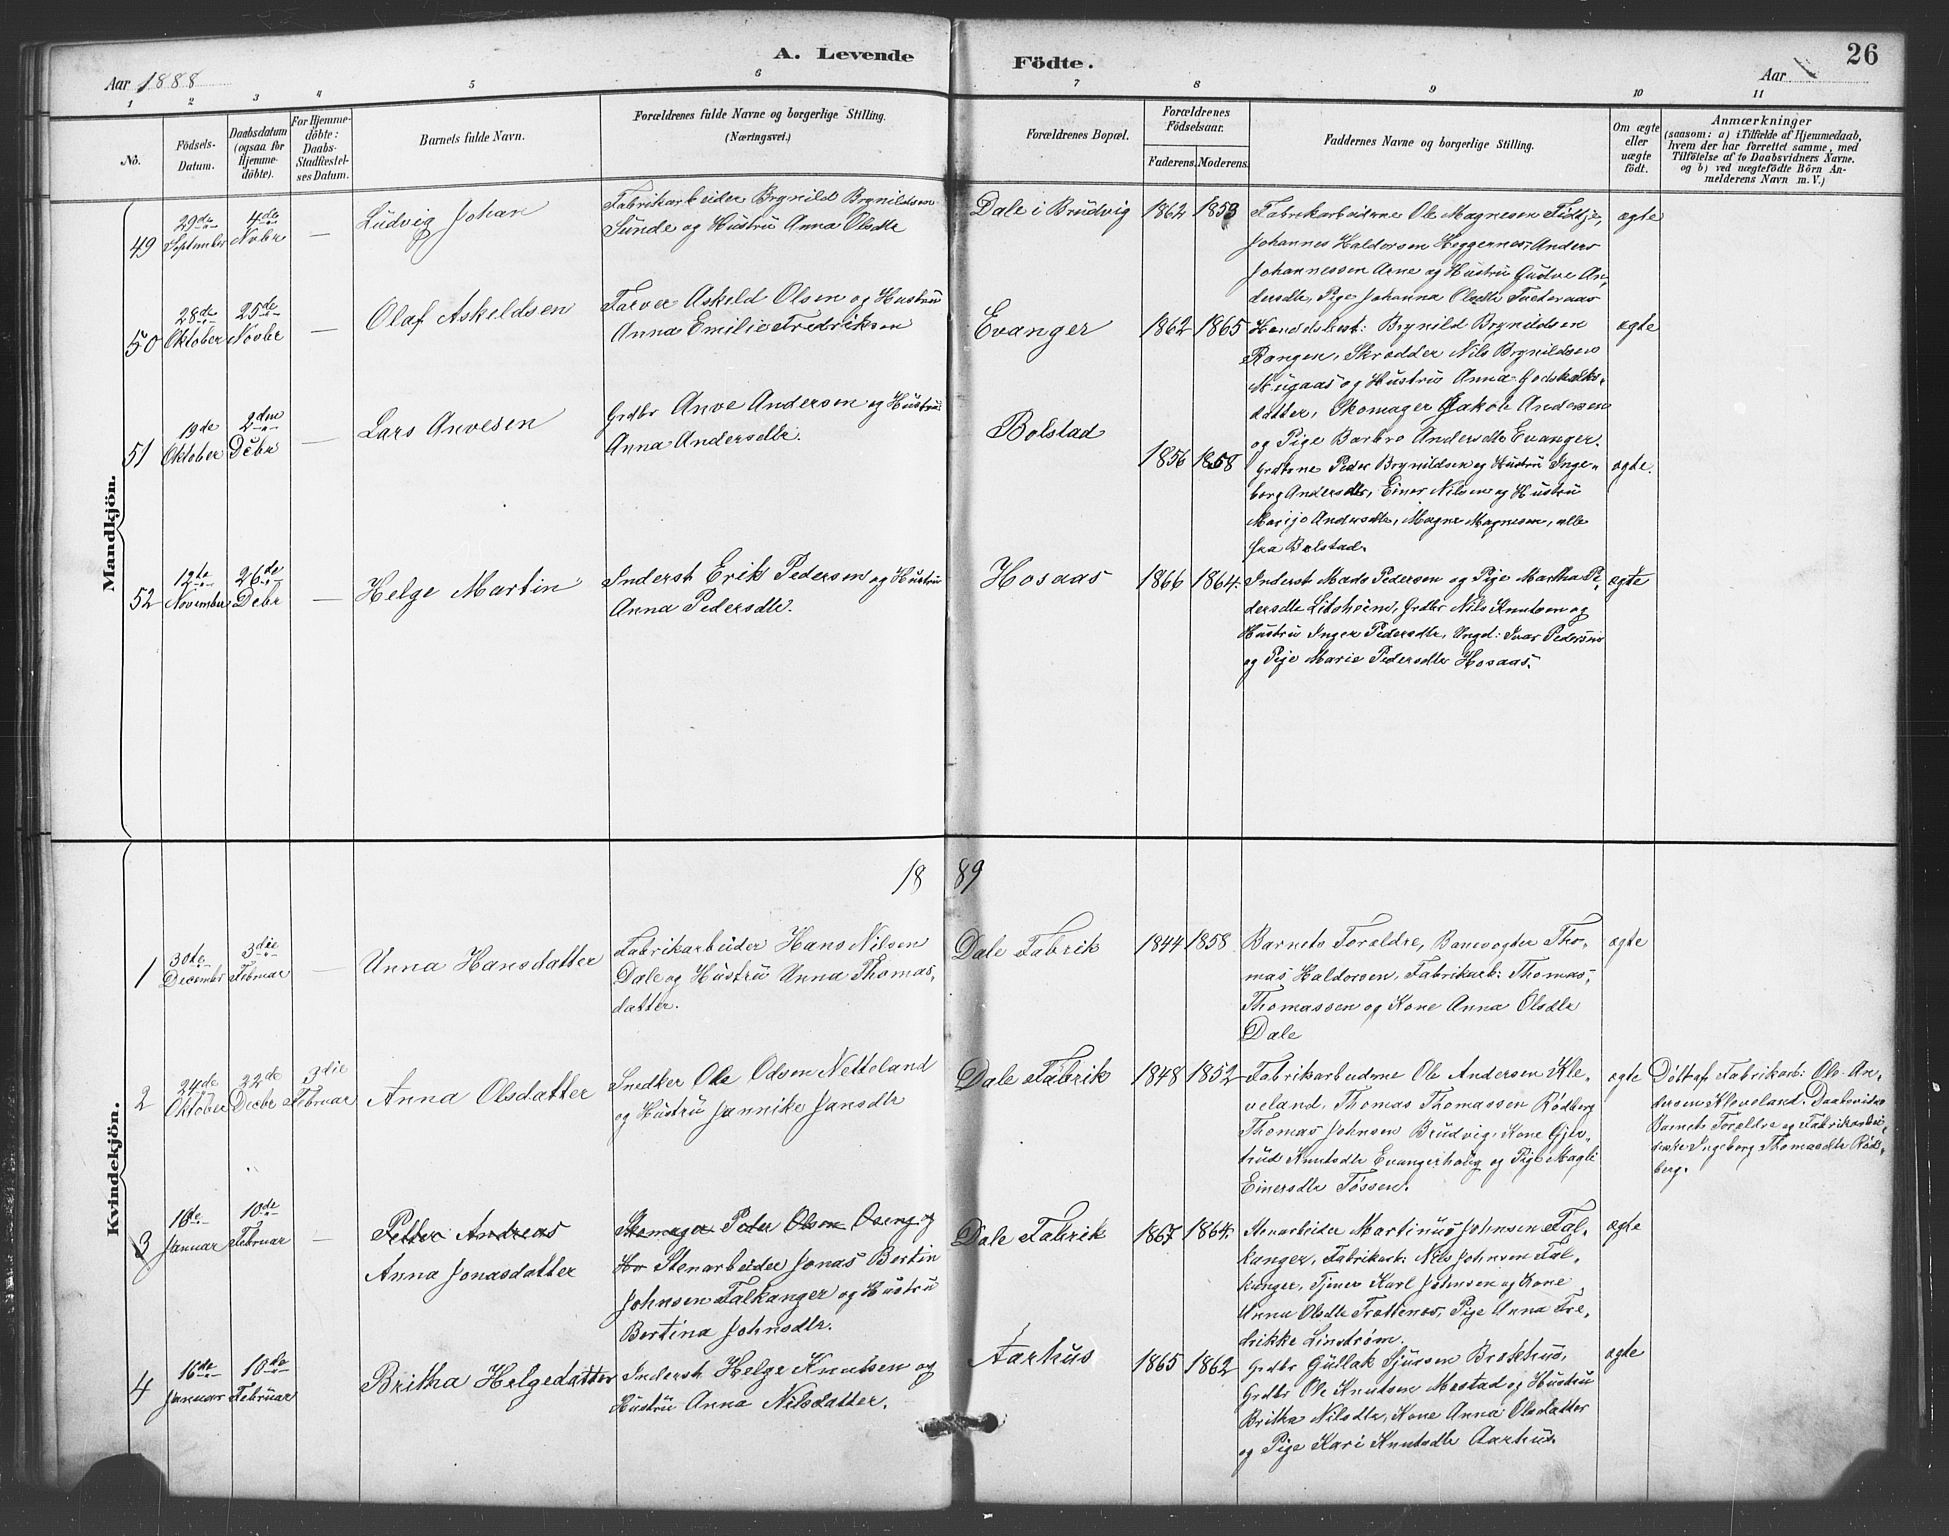 Aar 1888
A. Levende Födte.
Aar
26
1 2 3 4 5 6 7 8 9 10 11
No.
Födsels-Datum.
Daabsdatum (ogsaa for Hjemmedöbte).
For Hjemmedöbte: Daabs-Stadfestelses Datum.
Barnets fulde Navn.
Forældrenes fulde Navne og borgerlige Stilling. (Næringsvei.)
Forældrenes Bopæl.
Forældrenes Födselsaar.
Faderens. Moderens.
Faddernes Navne og borgerlige Stilling.
Om ægte eller uægte födt.
Anmærkninger
(saasom: a) i Tilfælde af Hjemmedaab,
hvem der har forrettet samme, med
Tilföielse af to Daabsvidners Navne.
og b) ved uægtefödte Börn Anmelderens Navn m. V.)
Mandkjön.
49
29de September
4de Novbr
—
Ludvig Johan
Fabrikarbeider Brynild Brynildsen
Sunde og Hustru Anna Olsdtr
Dale i Brudvig
1862
1859
Fabrikarbeiderne Ole Magnesen Fidtje,
Johannes Haldorsen Heggernes, Anders
Johannessen Arne og Hustru Gudve An-
dersdtr, Pige Johanna Olsdtr
ægte
50
28de Oktober
25de Novbr
—
Olaf Askeldsen
Farver Askeld Olsen og Hustru
Anna Emilie Fredriksen
Evanger
1862
1865
Handelsbest: Brynild Brynildsen
Rongen, Skrædder Nils Brynildsen
Mugaas og Hustru Anna Godskalks-
datter, Skomager Jakob Andersen
og Pige Barbro Andersdtr Evanger.
ægte
51
19de Oktober
2den Debr
—
Lars Anvesen
Grdbr Anve Andersen og Hustru
Anna Andersdtr.
Bolstad
1856
1858
Grdkone Peder Brynildsen og Hustru Inge-
borg Andersdtr, Einer Nilsen og Hustru
Marijo Andersdtr, Magne Magnesen, alle
fra Bolstad.
ægte.
52
12te November
26de Debr
—
Helge Martin
Inderst Erik Pedersen og Hustru
Anna Pedersdtr.
Hosaas
1866
1864.
Inderst Mads Pedersen og Pige Martha Pe-
dersdtr Litsheim, Grdbr Nils Knutsen og
Hustru Inger Pedersdtr, Ungd: Ivar Pedersen
og Pige Marie Pedersdtr Hosaas.
ægte
1889
Kvindekjön.
1
30te Decembr
3die Februar
—
Unna Hansdatter
Fabrikarbeider Hans Nilsen
Dale og Hustru Unna Thomas-
datter.
Dale Fabrik
1844
1858
Barnets Forældre, Banevogter Tho-
mas Haldorsen, Fabrikarb: Thomas
Thomassen og Kone Anna Olsdtr
Dale
ægte
2
24de Oktober
22de Decbr
3die Februar
Anna Olsdatter
Snedker Ole Odsen Netteland
og Hustru Jannike Jansdtr
Dale Fabrik
1848
1852
Fabrikarbeiderne Ole Andersen Kle-
veland, Thomas Thomassen Rødberg
Thomas Johnsen Brudvig, Kone Gjer-
trud Knutsdtr Evangerhaug og Pige Magli
Einersdtr Tøssen.
ægte
Døbt af Fabrikarb: Ole An-
dersen Kleveland. Daabsvidner
Barnets Forældre og Fabrikarbei-
derske Ingeborg Thomasdtr Rød-
berg.
3
16de Januar
10de Februar
—
Petter Andreas
Anna Jonasdatter
Skomager Peder Olsen Oseng og
Hu Stenarbeider Jonas Bertin
Johnsen Falkanger og Hustru
Bertina Johnsdtr.
Dale Fabrik
1867
1864.
Stenarbeider Martinus Johnsen Fal-
kanger, Fabrikarb: Nils Johnsen Fal-
kanger, Tjener Karl Johnsen og Kone
Anna Olsdtr Trættenes, Pige Anna Fre-
drikke Linstrøm.
ægte
4
16de Januar
10de Februar
Britha Helgedatter
Inderst Helge Knutsen og
Hustru Anna Nilsdatter.
Aarhus
1865
1862
Grdbr Gullak Sjursen Brekhus,
Grdbr Ole Knutsen Mestad og Hustru
Britha Nilsdtr, Kone Anna Olsdatter
og Pige Kari Knutsdtr Aarhus.
ægte